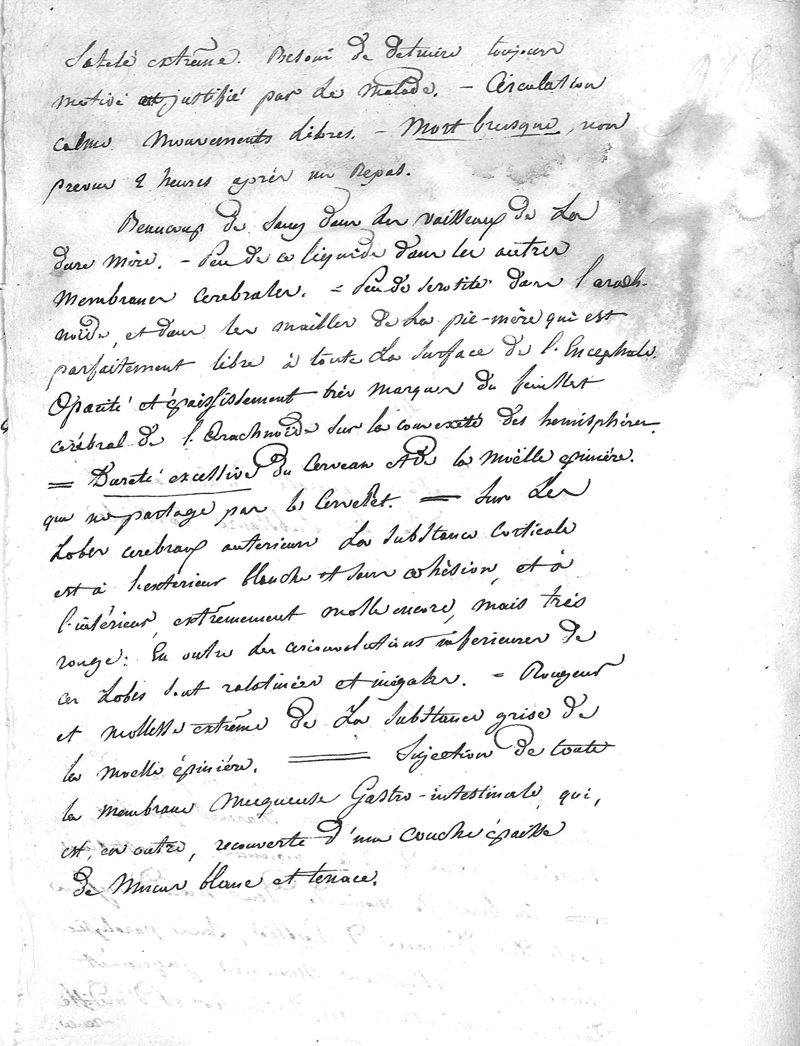 Saleté extrême. Besoin de détruire toujours
motivé et justifié par le malade. - Circulation
calme Mouvements libres. - Mort brusque, non
prevue 2 heures après un Repas.
Beaucoup de Sang dans les vaisseaux de La
dure mère. - Peu de ce liquide dans les autres
Membranes cerebrales. = Peu de serosité dans l'arach-
noïde, et dans les mailles de La pie-mère qui est
parfaitement libre à toute La Surface de l'Encephale.
Opacité et épaississement très marqués du feuillet
cerébral de l'Arachnoïde sur la convexité des hemisphères.
= Dureté excessive du Cerveau et de la Moëlle épinière.
que ne partage pas le Cervelet. = Sur Les
Lobes cerebraux anterieurs La Substance Corticale
est à l'extérieur blanche et sans cohésion, et à
l'intérieur, extrêmement molle encore, mais très
rouge: En outre les circonvolutions inferieures de
ces Lobes sont ratatinées et inégales. = Rougeur
et Mollesse extrême de La Substance grise de
la moelle épinière. = Injection de toute
la membrane Muqueuse Gastro-intestinale, qui,
est, en outre, recouverte d'une couche épaisse
de Mucus blanc et tenace.